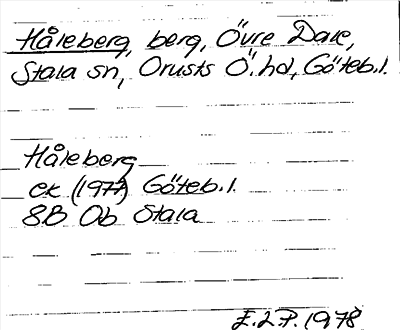 Håleberg, berg, Övre Dale,
Stala sn, Orusts Ö. hd, Göteb. l.
Håleberg
ek (1977) Göteb. l.
8B Ob Stala
E.L.P. 1978